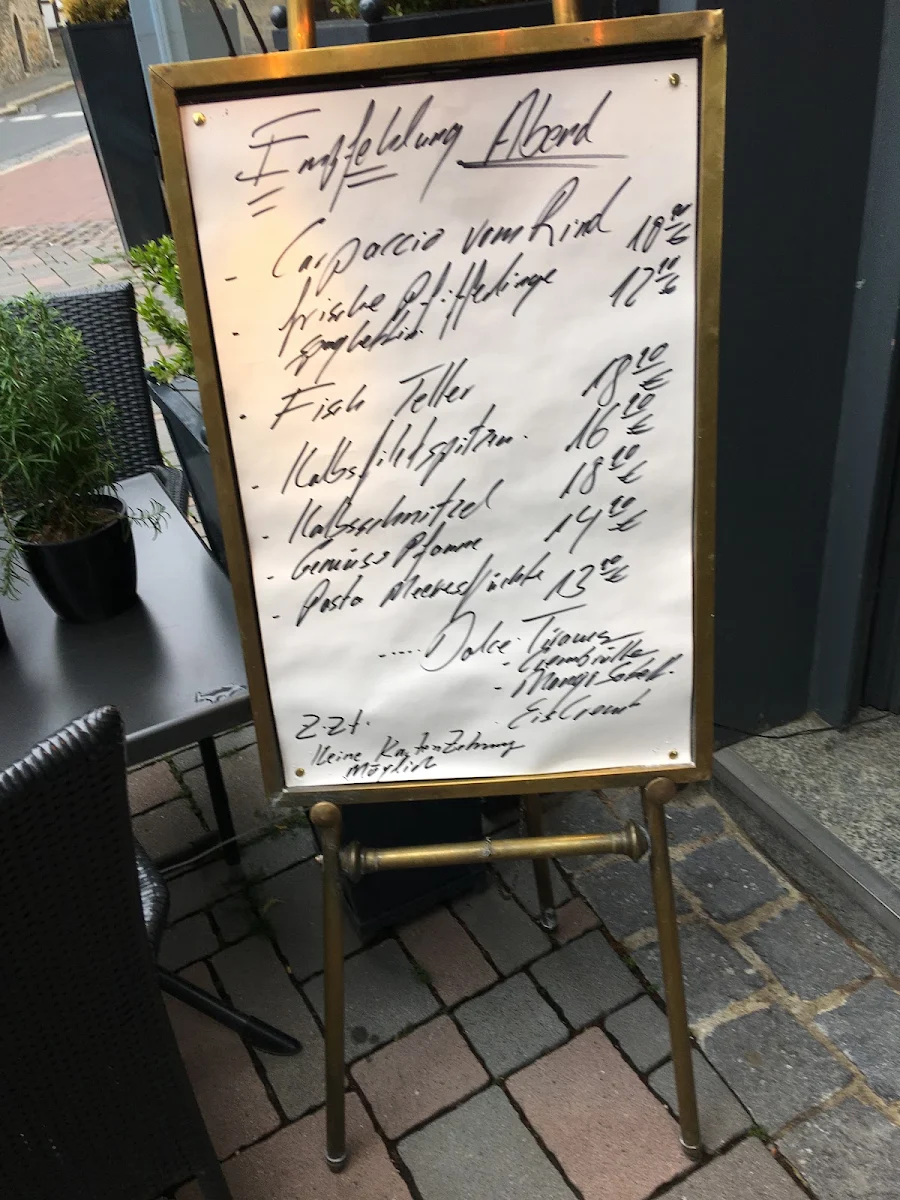 Empfehlung Abend
- Carpaccio vom Rind 10,00 €
- frische Pfifferlinge 12,00 €
spaghettini
- Fisch Teller 18,00 €
- Kalbsfiletspitzen. 16,00 €
- Kalbsschnitzel 18,00 €
- Gemüse Pfanne 14,00 €
- Pasta Meeresfrüchte 13,00 €
.... Dolce: Tiramis
-
- Mango
Eis
z.Zt.
Keine Karten Zahlung
Möglich